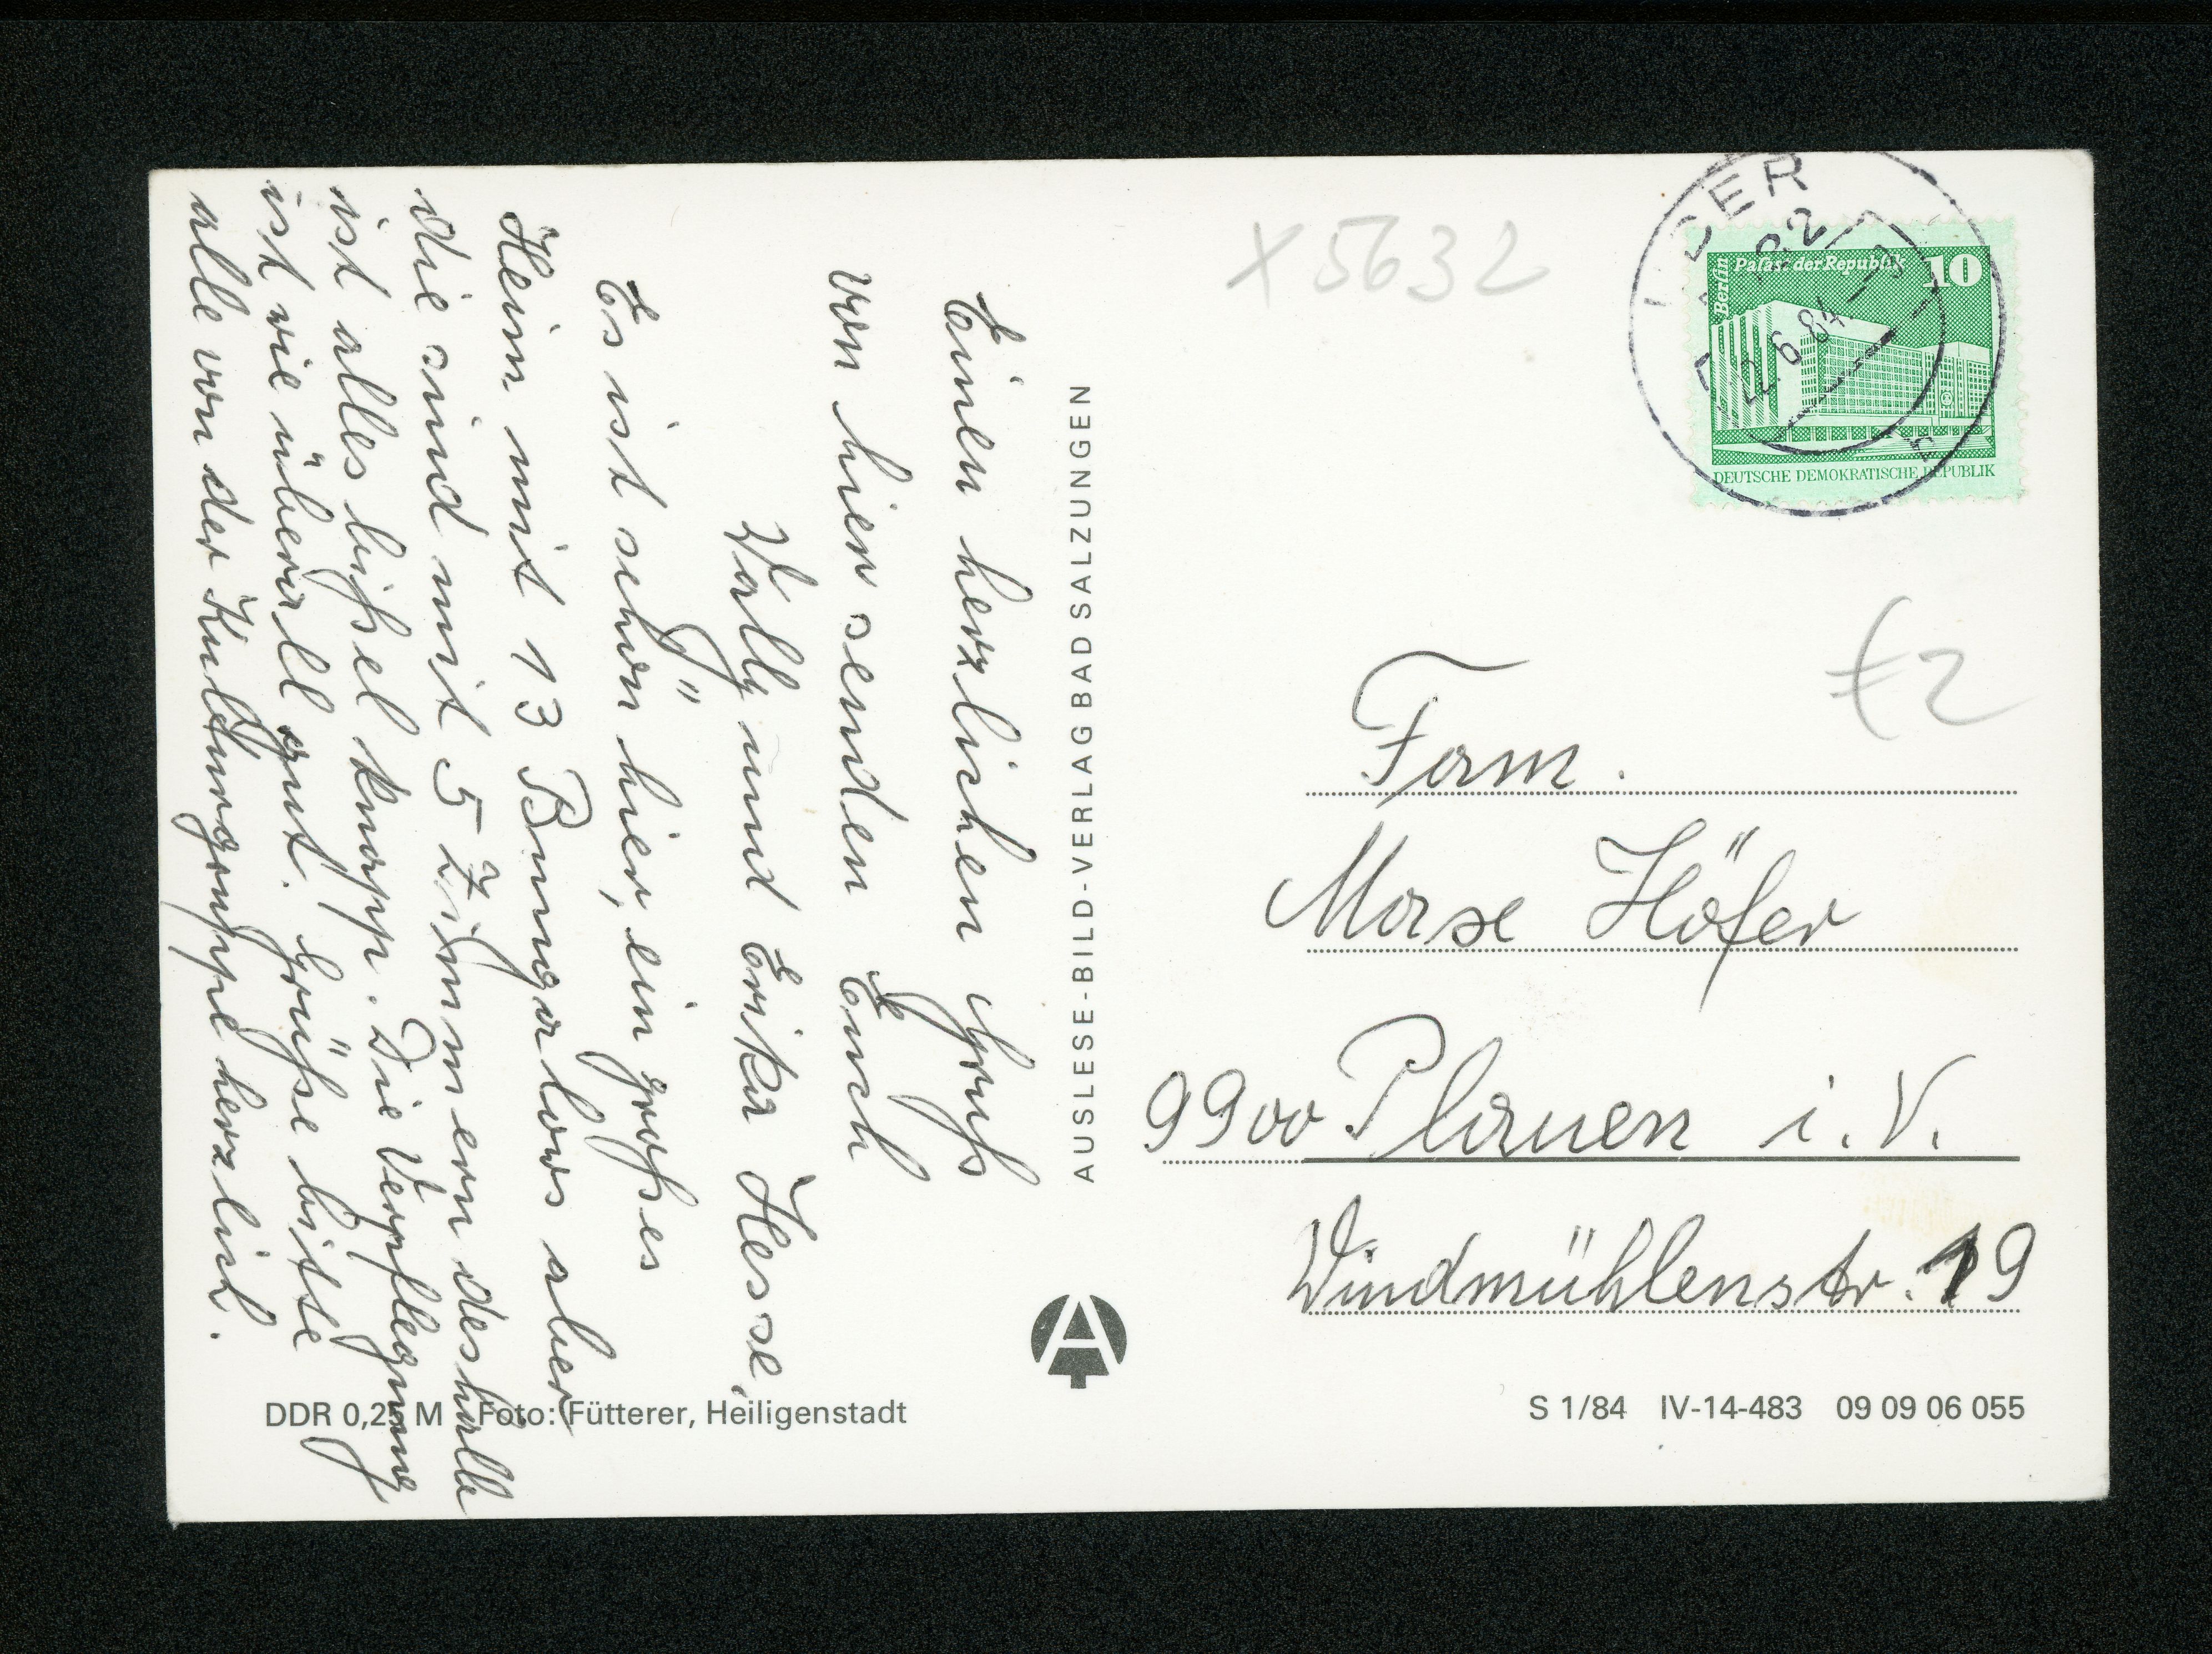 Einen herzlichen Gruß
von hier senden Euch
Wally und Erika Hesse,
Es ist schön hier, ein großes
Heim mit 13 Bungalows aber
die sind mit 5 Zimmern deshalb
ist alles bißel knapp. Die Verpflegung
ist wie überall gut. Grüße bitte
alle von der Kulturgruppe herzlich.
AUSLESE-BILD-VERLAG BAD SALZUNGEN
DDR 0,25 M Foto: Fütterer, Heiligenstadt
X 5632
Berlin
Palast der Republik 10
DEUTSCHE DEMOKRATISCHE REPUBLIK
2.6.84
€2
Fam.
Höfer
9900 Plauen i.V.
Windmühlenstr. 19
S 1/84 IV-14-483 09 09 06 055